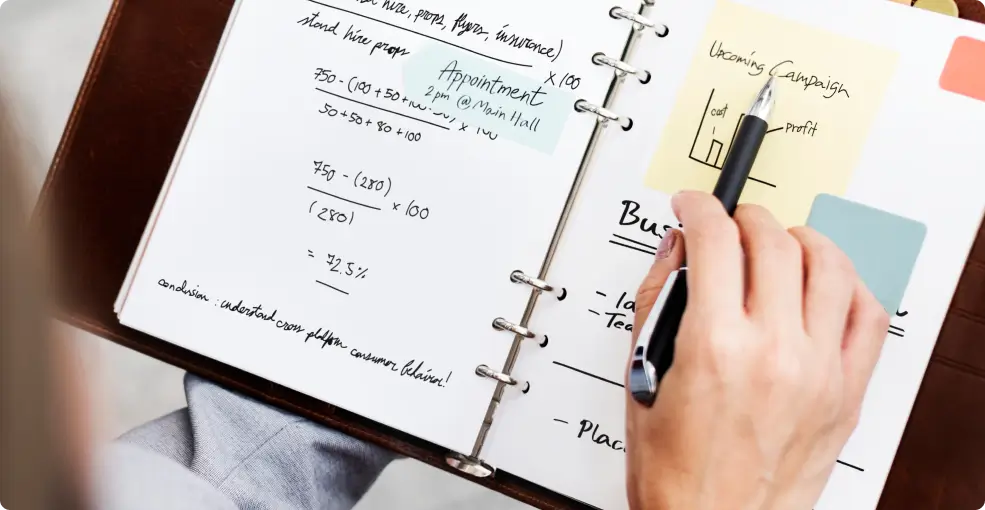 hire, props, flyers, insurance)
x 100
stand hire props
750 - (100 + 50 +
x 100
50 + 50 + 80 + 100
Appointment
2pm @ Main Hall
750 - (280)
x 100
(280)
= 72.5%
conclusion : understand cross platform consumer behavior!
Upcoming Campaign
cost
profit
Bus
- Ia
- Tea
- Plac